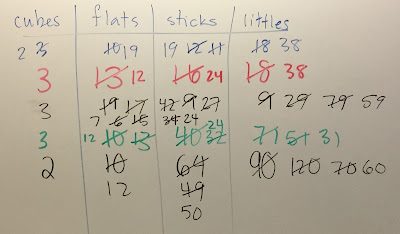 cubes flats sticks littles
2 3 10 19 19 12 11 18 38
3 13 12 16 24 18 38
3 19 17 42 9 27 9 29 79 59
7 6 15 34 24
3 12 10 13 40 32 24 71 51 31
2 10 64 90 120 70 60
12 49
50